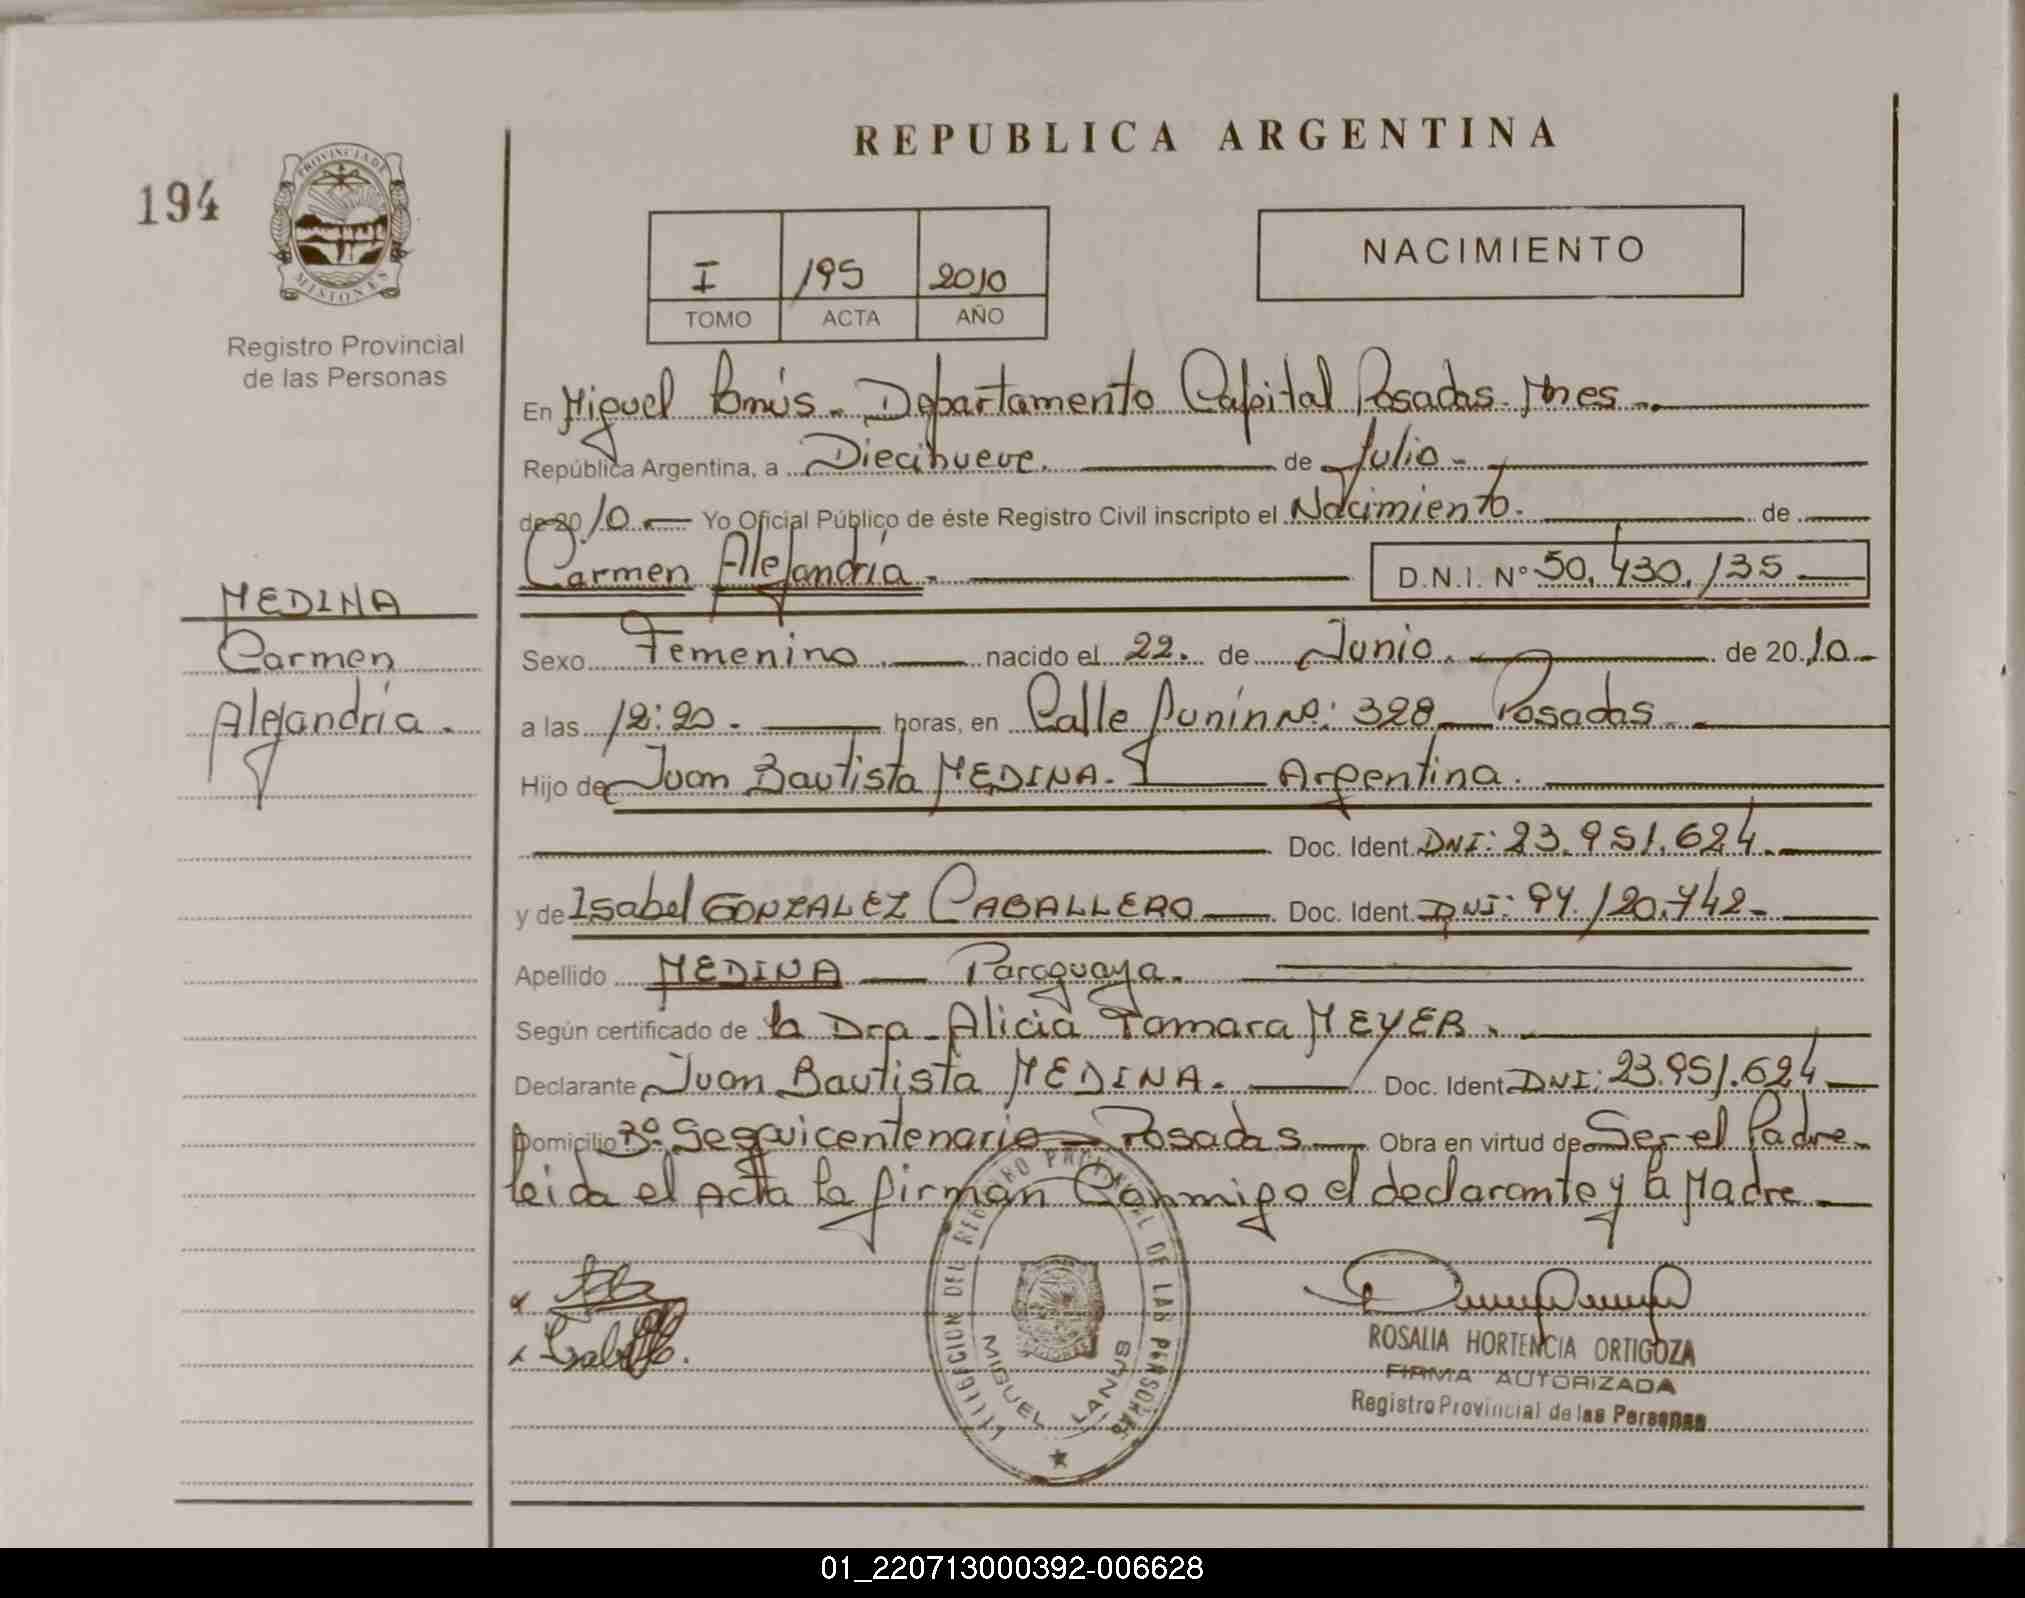 REPUBLICA ARGENTINA
194
PROVINCIA DE
MISIONES
Registro Provincial
de las Personas
I 195 2010
TOMO ACTA AÑO
NACIMIENTO
En Miguel Lanús - Departamento Capital Posadas - Mnes -.
República Argentina, a Diecinueve. de Julio -
de 2010. Yo Oficial Público de éste Registro Civil inscripto el Nacimiento. de
Carmen Alejandría - D.N.I. Nº 50.430.135
MEDINA
Carmen
Alejandría -
Sexo Femenino. nacido el 22. de Junio. de 2010
a las 12:20 - horas, en Calle Junín Nº: 328 Posadas -
Hijo de Juan Bautista MEDINA - Argentina.
Doc. Ident. DNI: 23.951.624.
y de Isabel GONZALEZ CABALLERO Doc. Ident. DNI: 94.120.742-
Apellido MEDINA Paraguaya.
Según certificado de la Dra - Alicia Tamara MEYER.
Declarante Juan Bautista MEDINA. Doc. Ident DNI: 23.951.624
Domicilio Bº. Sesquicentenario - Posadas Obra en virtud de Ser el Padre
leida el Acta la firman Conmigo el declarante y la Madre
DELEGACION DEL REGISTRO PROVINCIAL DE LAS PERSONAS
MIGUEL LANUS
ROSALIA HORTENCIA ORTIGOZA
FIRMA AUTORIZADA
Registro Provincial de las Personas
01_220713000392-006628